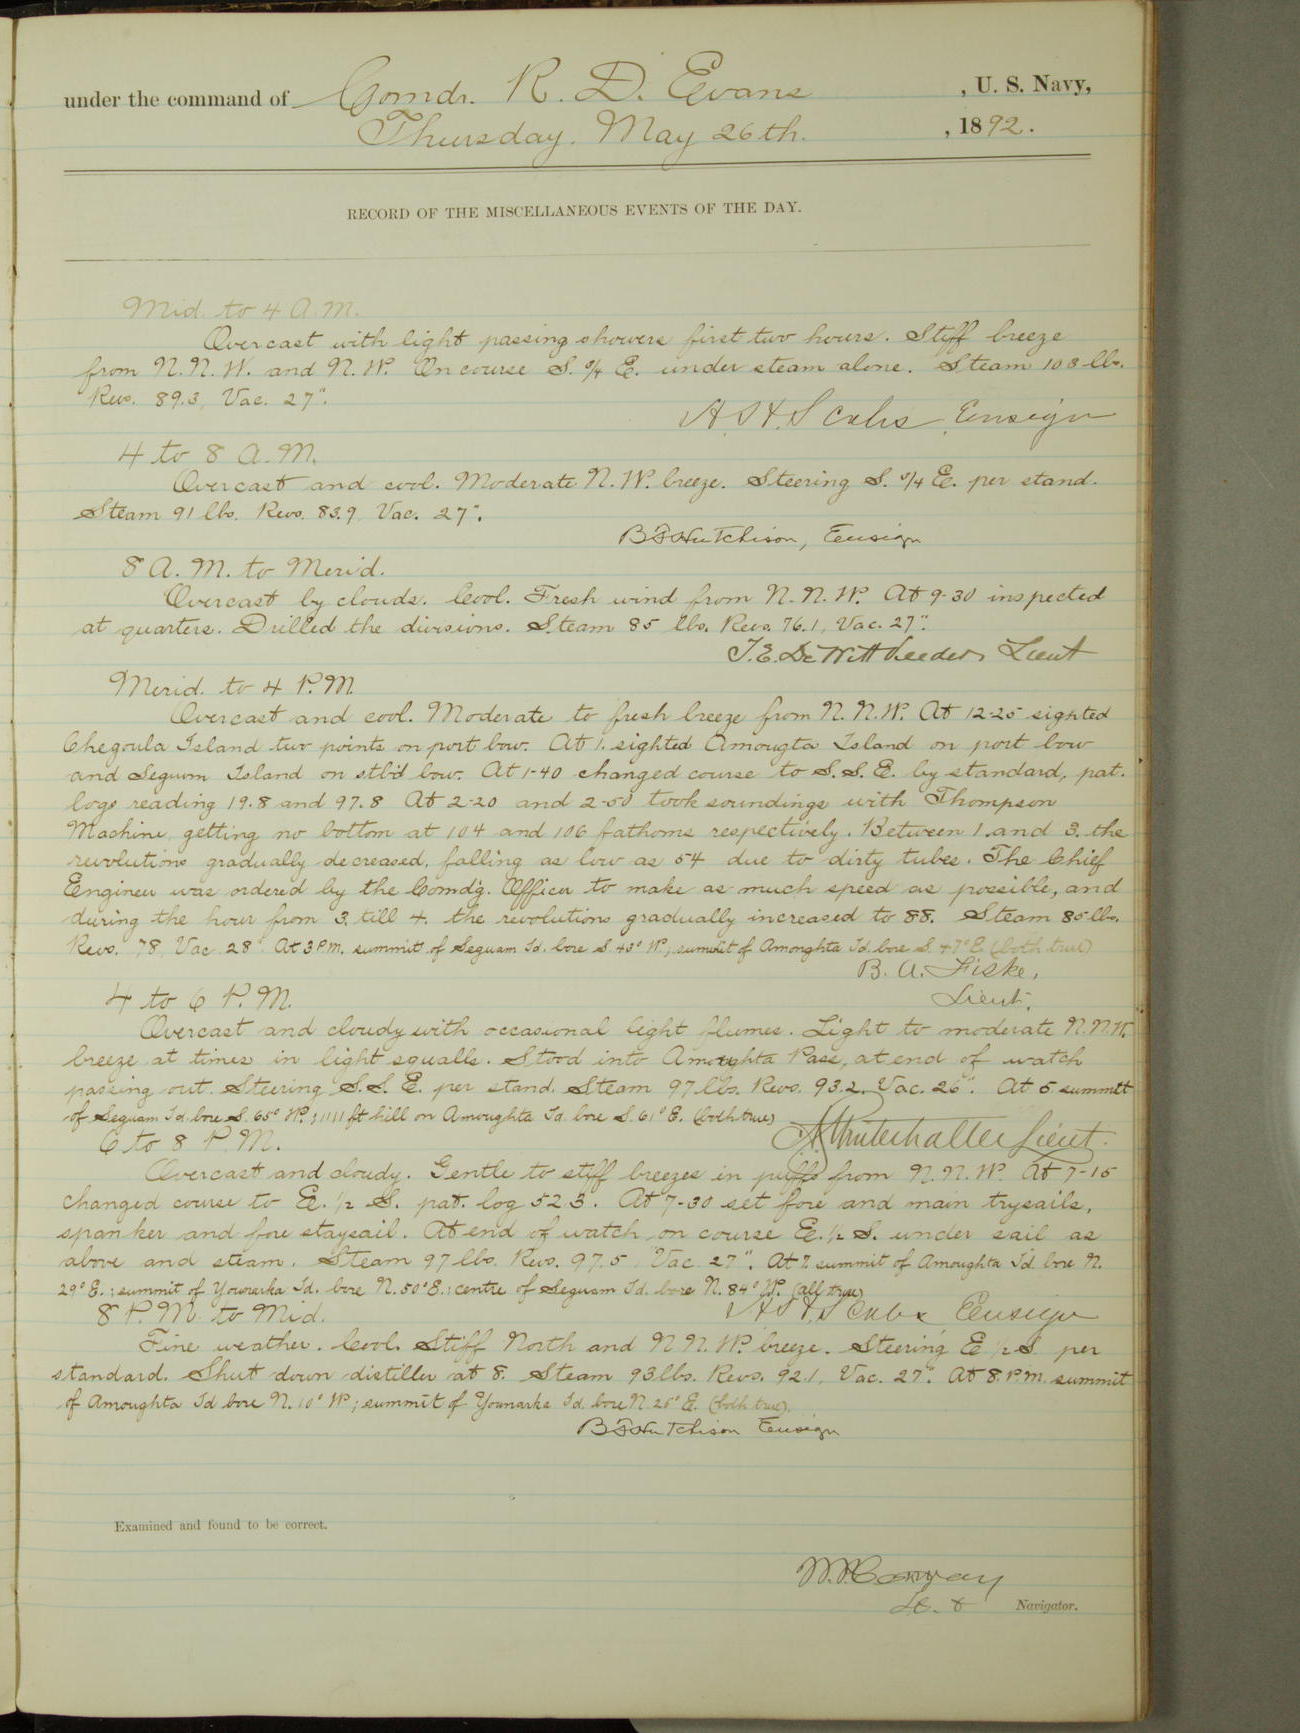 under the command of Comdr. R. D. Evans, U. S. Navy,
Thursday. May 26th., 1892.
RECORD OF THE MISCELLANEOUS EVENTS OF THE DAY.
Mid. to 4 A.M.
Overcast with light passing showers first two hours. Stiff breeze
from N.N.W. and N.W. On course S. 3/4 E. under steam alone. Steam 103 lbs.
Revs. 89.3, Vac. 27".
A.H. Scales, Ensign
4 to 8 A.M.
Overcast and cool. Moderate N.W. breeze. Steering S. 3/4 E. per stand.
Steam 91 lbs. Revs. 83.9 Vac. 27".
B.F. Hutchison, Ensign
8 A.M. to Merid.
Overcast by clouds. Cool. Fresh wind from N.N.W. At 9-30 inspected
at quarters. Drilled the divisions. Steam 85 lbs. Revs. 76.1, Vac. 27".
T.E. DeWitt Veeder, Lieut
Merid. to 4 P.M.
Overcast and cool. Moderate to fresh breeze from N.N.W. At 12-25 sighted
Chegoula Island two points on port bow. At 1. sighted Amougta Island on port bow
and Seguam Island on stb'd bow. At 1-40 changed course to S.S.E. by standard, pat.
logs reading 19.8 and 97.8 At 2-20 and 2-50 took soundings with Thompson
Machine, getting no bottom at 104 and 106 fathoms respectively. Between 1. and 3. the
revolutions gradually decreased, falling as low as 54 due to dirty tubes. The Chief
Engineer was ordered by the Comd'g. Officer to make as much speed as possible, and
during the hour from 3. till 4. the revolutions gradually increased to 88. Steam 85 lbs.
Revs. 78, Vac. 28". At 3 P.M. summit of Seguam Id. bore S. 43° W.; summit of Amoughta Id. bore S. 47° E. (both true)
B. A. Fiske,
Lieut.
4 to 6 P.M.
Overcast and cloudy with occasional light flumes. Light to moderate N.N.W.
breeze at times in light squalls. Stood into Amoughta Pass, at end of watch
passing out. Steering S.S.E. per stand. Steam 97 lbs. Revs. 93.2. Vac. 26". At 5 summit
of Seguam Id. bore S. 65° W.; 1111 ft hill on Amoughta Id. bore S. 61° E. (both true)
Winterhalter Lieut.
6 to 8 P.M.
Overcast and cloudy. Gentle to stiff breezes in puffs from N.N.W. At 7-15
changed course to E. 1/2 S. pat. log 52.3. At 7-30 set fore and main trysails,
spanker and fore staysail. At end of watch on course E. 1/2 S. under sail as
above and steam. Steam 97 lbs. Revs. 97.5 Vac. 27". At 7. summit of Amoughta Id. bore N.
29° E.; summit of Younaska Id. bore N. 50° E.; centre of Seguam Id. bore N. 84° W. (all true)
A.H. Scales Ensign
8 P.M. to Mid.
Fine weather. Cool. Stiff North and N.N.W. breeze. Steering E 1/2 S. per
standard. Shut down distiller at 8. Steam 93 lbs. Revs. 92.1, Vac. 27". At 8 P.M. summit
of Amoughta Id bore N. 10° W; summit of Younaska Id. bore N. 26° E. (both true).
B.F. Hutchison Ensign
Examined and found to be correct.
Conway
Lt.
Navigator.